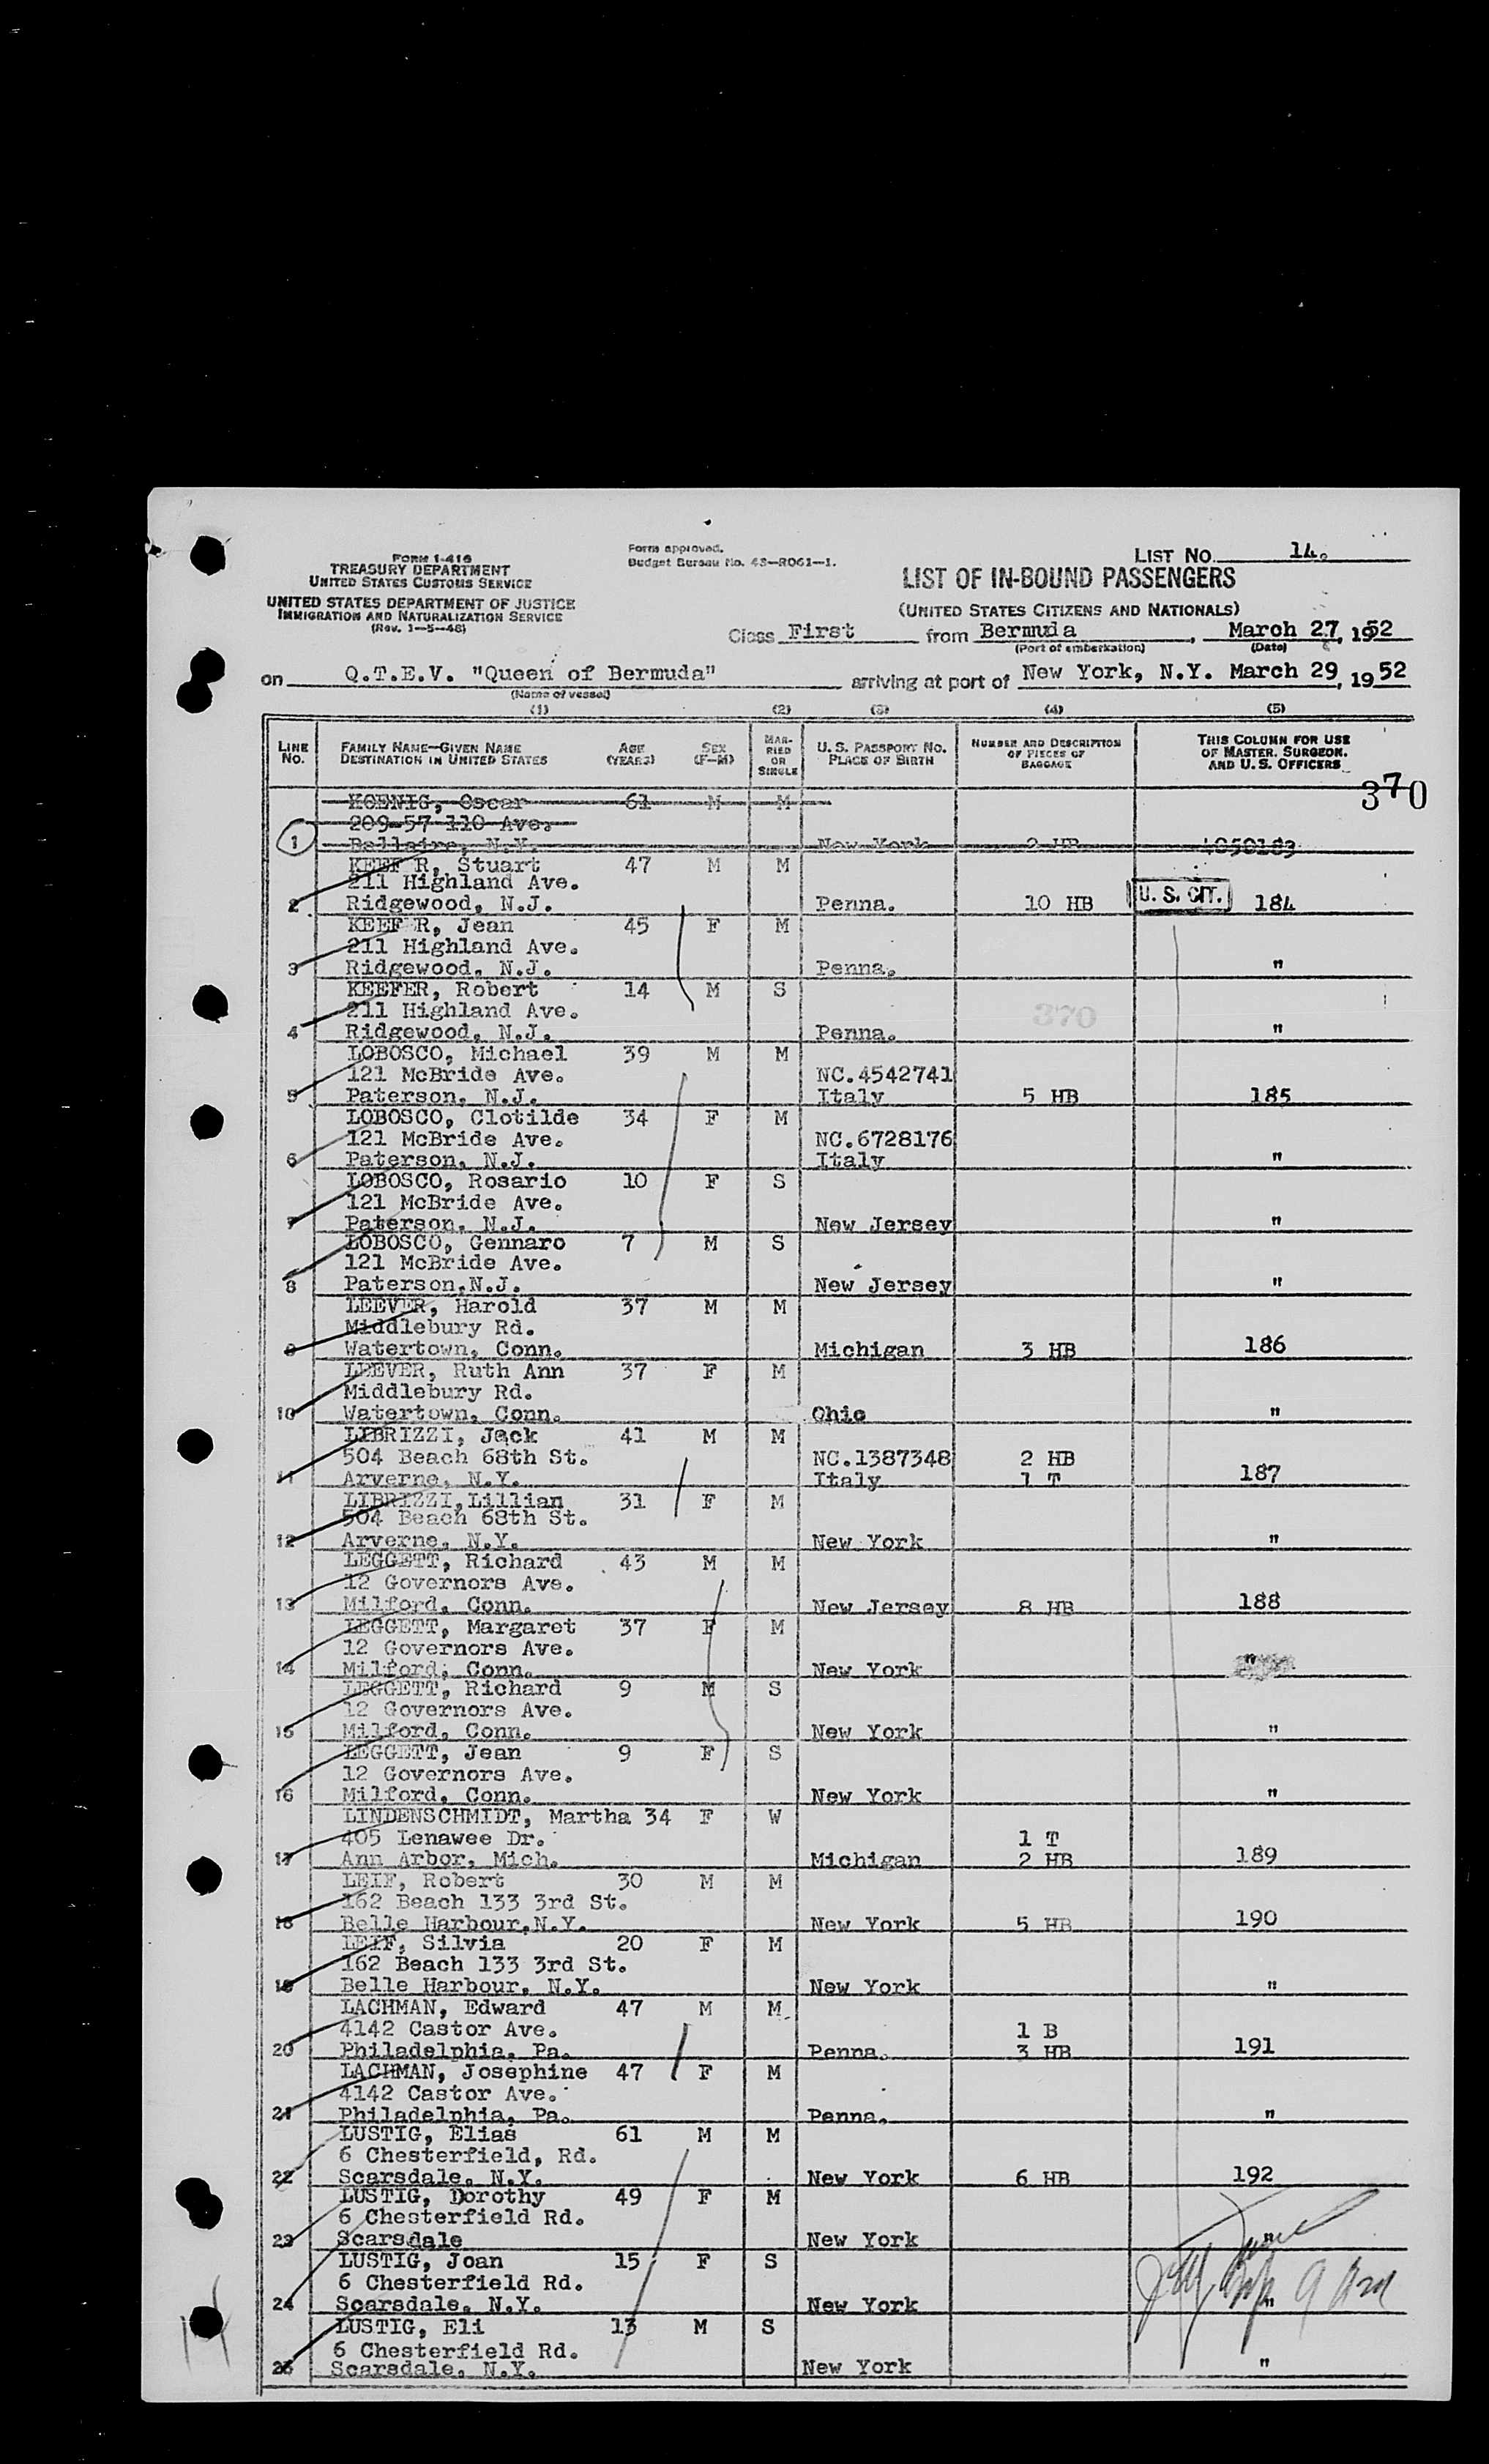 FORM I-416
TREASURY DEPARTMENT
UNITED STATES CUSTOMS SERVICE
UNITED STATES DEPARTMENT OF JUSTICE
IMMIGRATION AND NATURALIZATION SERVICE
(Rev. 1-5-48)
Form approved.
Budget Bureau No. 43-R061-1.
LIST NO. 14.
LIST OF IN-BOUND PASSENGERS
(UNITED STATES CITIZENS AND NATIONALS)
Class First from Bermuda, March 27, 1952
(Port of embarkation) (Date)
on Q.T.E.V. "Queen of Bermuda" arriving at port of New York, N.Y. March 29, 1952
(Name of vessel)
(1) (2) (3) (4) (5)
LINE NO. FAMILY NAME—GIVEN NAME DESTINATION IN UNITED STATES AGE (YEARS) SEX (F-M) MARRIED OR SINGLE U. S. PASSPORT NO. PLACE OF BIRTH NUMBER AND DESCRIPTION OF PIECES OF BAGGAGE THIS COLUMN FOR USE OF MASTER, SURGEON, AND U. S. OFFICERS
370
KOENIG, Oscar 61 M M
209-57 110 Ave.
1 Bellaire, N.Y. New York 2 HB
KEEF R, Stuart 47 M M
211 Highland Ave.
2 Ridgewood, N.J. Penna. 10 HB U. S. CIT. 184
KEEF R, Jean 45 F M
211 Highland Ave.
3 Ridgewood, N.J. Penna. "
KEEFER, Robert 14 M S
211 Highland Ave. 370
4 Ridgewood, N.J. Penna. "
LOBOSCO, Michael 39 M M
121 McBride Ave. NC.4542741
5 Paterson, N.J. Italy 5 HB 185
LOBOSCO, Clotilde 34 F M
121 McBride Ave. NC.6728176
6 Paterson, N.J. Italy "
LOBOSCO, Rosario 10 F S
121 McBride Ave.
7 Paterson, N.J. New Jersey "
LOBOSCO, Gennaro 7 M S
121 McBride Ave.
8 Paterson,N.J. New Jersey "
LEEVER, Harold 37 M M
Middlebury Rd.
9 Watertown, Conn. Michigan 3 HB 186
LEEVER, Ruth Ann 37 F M
Middlebury Rd.
10 Watertown, Conn. Ohio "
LIBRIZZI, Jack 41 M M
504 Beach 68th St. NC.1387348 2 HB
11 Arverne, N.Y. Italy 1 T 187
LIBRIZZI,Lillian 31 F M
504 Beach 68th St.
12 Arverne, N.Y. New York "
LEGGETT, Richard 43 M M
12 Governors Ave.
13 Milford, Conn. New Jersey 8 HB 188
LEGGETT, Margaret 37 F M
12 Governors Ave.
14 Milford, Conn. New York "
LEGGETT, Richard 9 M S
12 Governors Ave.
15 Milford, Conn. New York "
LEGGETT, Jean 9 F S
12 Governors Ave.
16 Milford, Conn. New York "
LINDENSCHMIDT, Martha 34 F W
405 Lenawee Dr. 1 T
17 Ann Arbor, Mich. Michigan 2 HB 189
LEIF, Robert 30 M M
162 Beach 133 3rd St.
18 Belle Harbour,N.Y. New York 5 HB 190
LEIF, Silvia 20 F M
162 Beach 133 3rd St.
19 Belle Harbour, N.Y. New York "
LACHMAN, Edward 47 M M
4142 Castor Ave. 1 B
20 Philadelphia, Pa. Penna. 3 HB 191
LACHMAN, Josephine 47 F M
4142 Castor Ave.
21 Philadelphia, Pa. Penna. "
LUSTIG, Elias 61 M M
6 Chesterfield, Rd.
22 Scarsdale, N.Y. New York 6 HB 192
LUSTIG, Dorothy 49 F M
6 Chesterfield Rd.
23 Scarsdale New York "
LUSTIG, Joan 15 F S
6 Chesterfield Rd.
24 Scarsdale, N.Y. New York "
LUSTIG, Eli 13 M S
6 Chesterfield Rd.
25 Scarsdale, N.Y. New York "
14